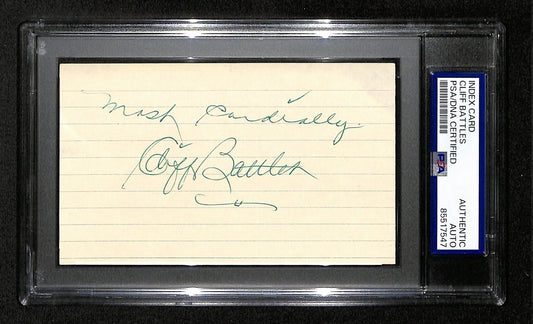 Most Cordially
Cliff Battles
INDEX CARD
CLIFF BATTLES
PSA/DNA CERTIFIED
PSA
AUTHENTIC
AUTO
85517547